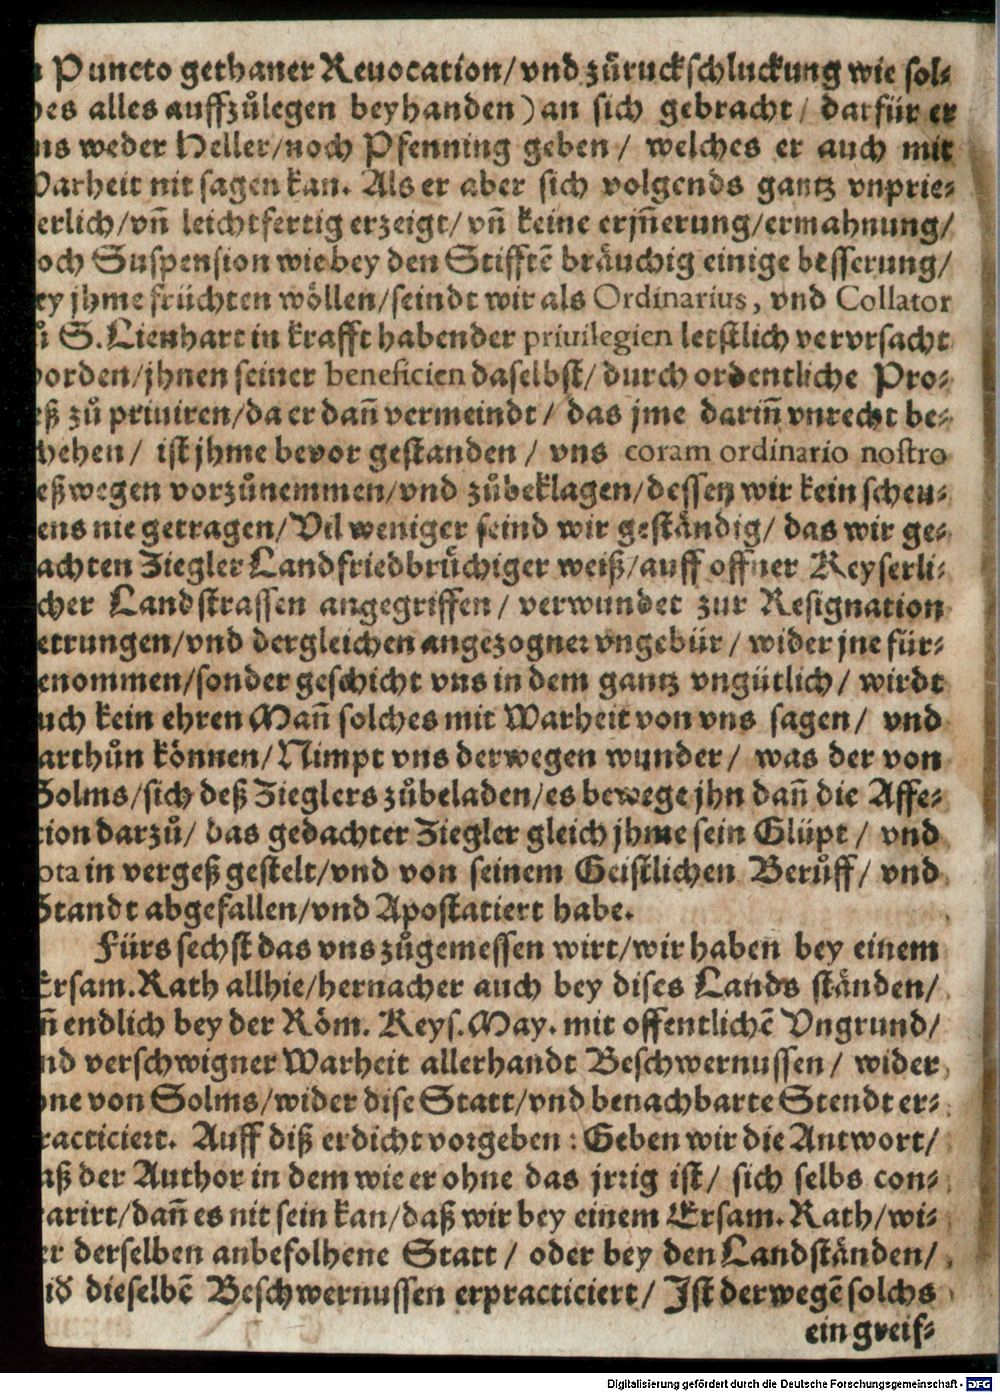 Puncto gethaner Reuocation/vnd zůruckschluckung wie sol-
hes alles auffzůlegen beyhanden) an sich gebracht/ darfür er
ns weder Heller/noch Pfenning geben/ welches er auch mit
Warheit nit sagen kan. Als er aber sich volgends gantz vnprie-
erlich/vñ leichtfertig erzeigt/vñ keine erjñerung/ermahnung/
och Suspension wie bey den Stifftẽ bräuchig einige besserung/
ey jhme früchten wöllen/seindt wir als Ordinarius, vnd Collator
S. Lienhart in krafft habender priuilegien letstlich vervrsacht
orden/jhnen seiner beneficien daselbst/durch ordentliche Pro-
eß zů priuiren/da er dañ vermeindt/ das jme dariñ vnrecht be-
hehen/ ist jhme bevor gestanden/ vns coram ordinario nostro
eßwegen vorzůnemmen/vnd zůbeklagen/dessen wir kein scheu-
ens nie getragen/Vil weniger seind wir geständig/ das wir ge-
achten Ziegler Landfriedbrüchiger weiß/auff offner Keyserli-
cher Landstrassen angegriffen/ verwundet zur Resignation
etrungen/vnd dergleichen angezogner vngebür/ wider jne für-
enommen/sonder geschicht vns in dem gantz vngütlich/ wirdt
uch kein ehren Mañ solches mit Warheit von vns sagen/ vnd
arthůn können/Nimpt vns derwegen wunder/ was der von
Solms/sich deß Zieglers zůbeladen/es bewege jhn dañ die Affe-
tion darzů/ das gedachter Ziegler gleich jhme sein Glüpt/ vnd
ota in vergeß gestelt/vnd von seinem Geistlichen Berůff/ vnd
Standt abgefallen/vnd Apostatiert habe.
Fürs sechst das vns zůgemessen wirt/wir haben bey einem
Ersam. Rath allhie/hernacher auch bey dises Lands ständen/
ñ endlich bey der Röm. Keys. May. mit offentlichẽ Vngrund/
nd verschwigner Warheit allerhandt Beschwernussen/ wider
ne von Solms/wider dise Statt/vnd benachbarte Stendt er-
racticiert. Auff diß erdicht vorgeben: Geben wir die Antwort/
aß der Author in dem wie er ohne das jrrig ist/ sich selbs con-
rarirt/dañ es nit sein kan/daß wir bey einem Ersam. Rath/wi-
er derselben anbefolhene Statt/ oder bey den Landständen/
id dieselbẽ Beschwernussen erpracticiert/ Jst derwegẽ solchs
ein greif-
Digitalisierung gefördert durch die Deutsche Forschungsgemeinschaft - DFG